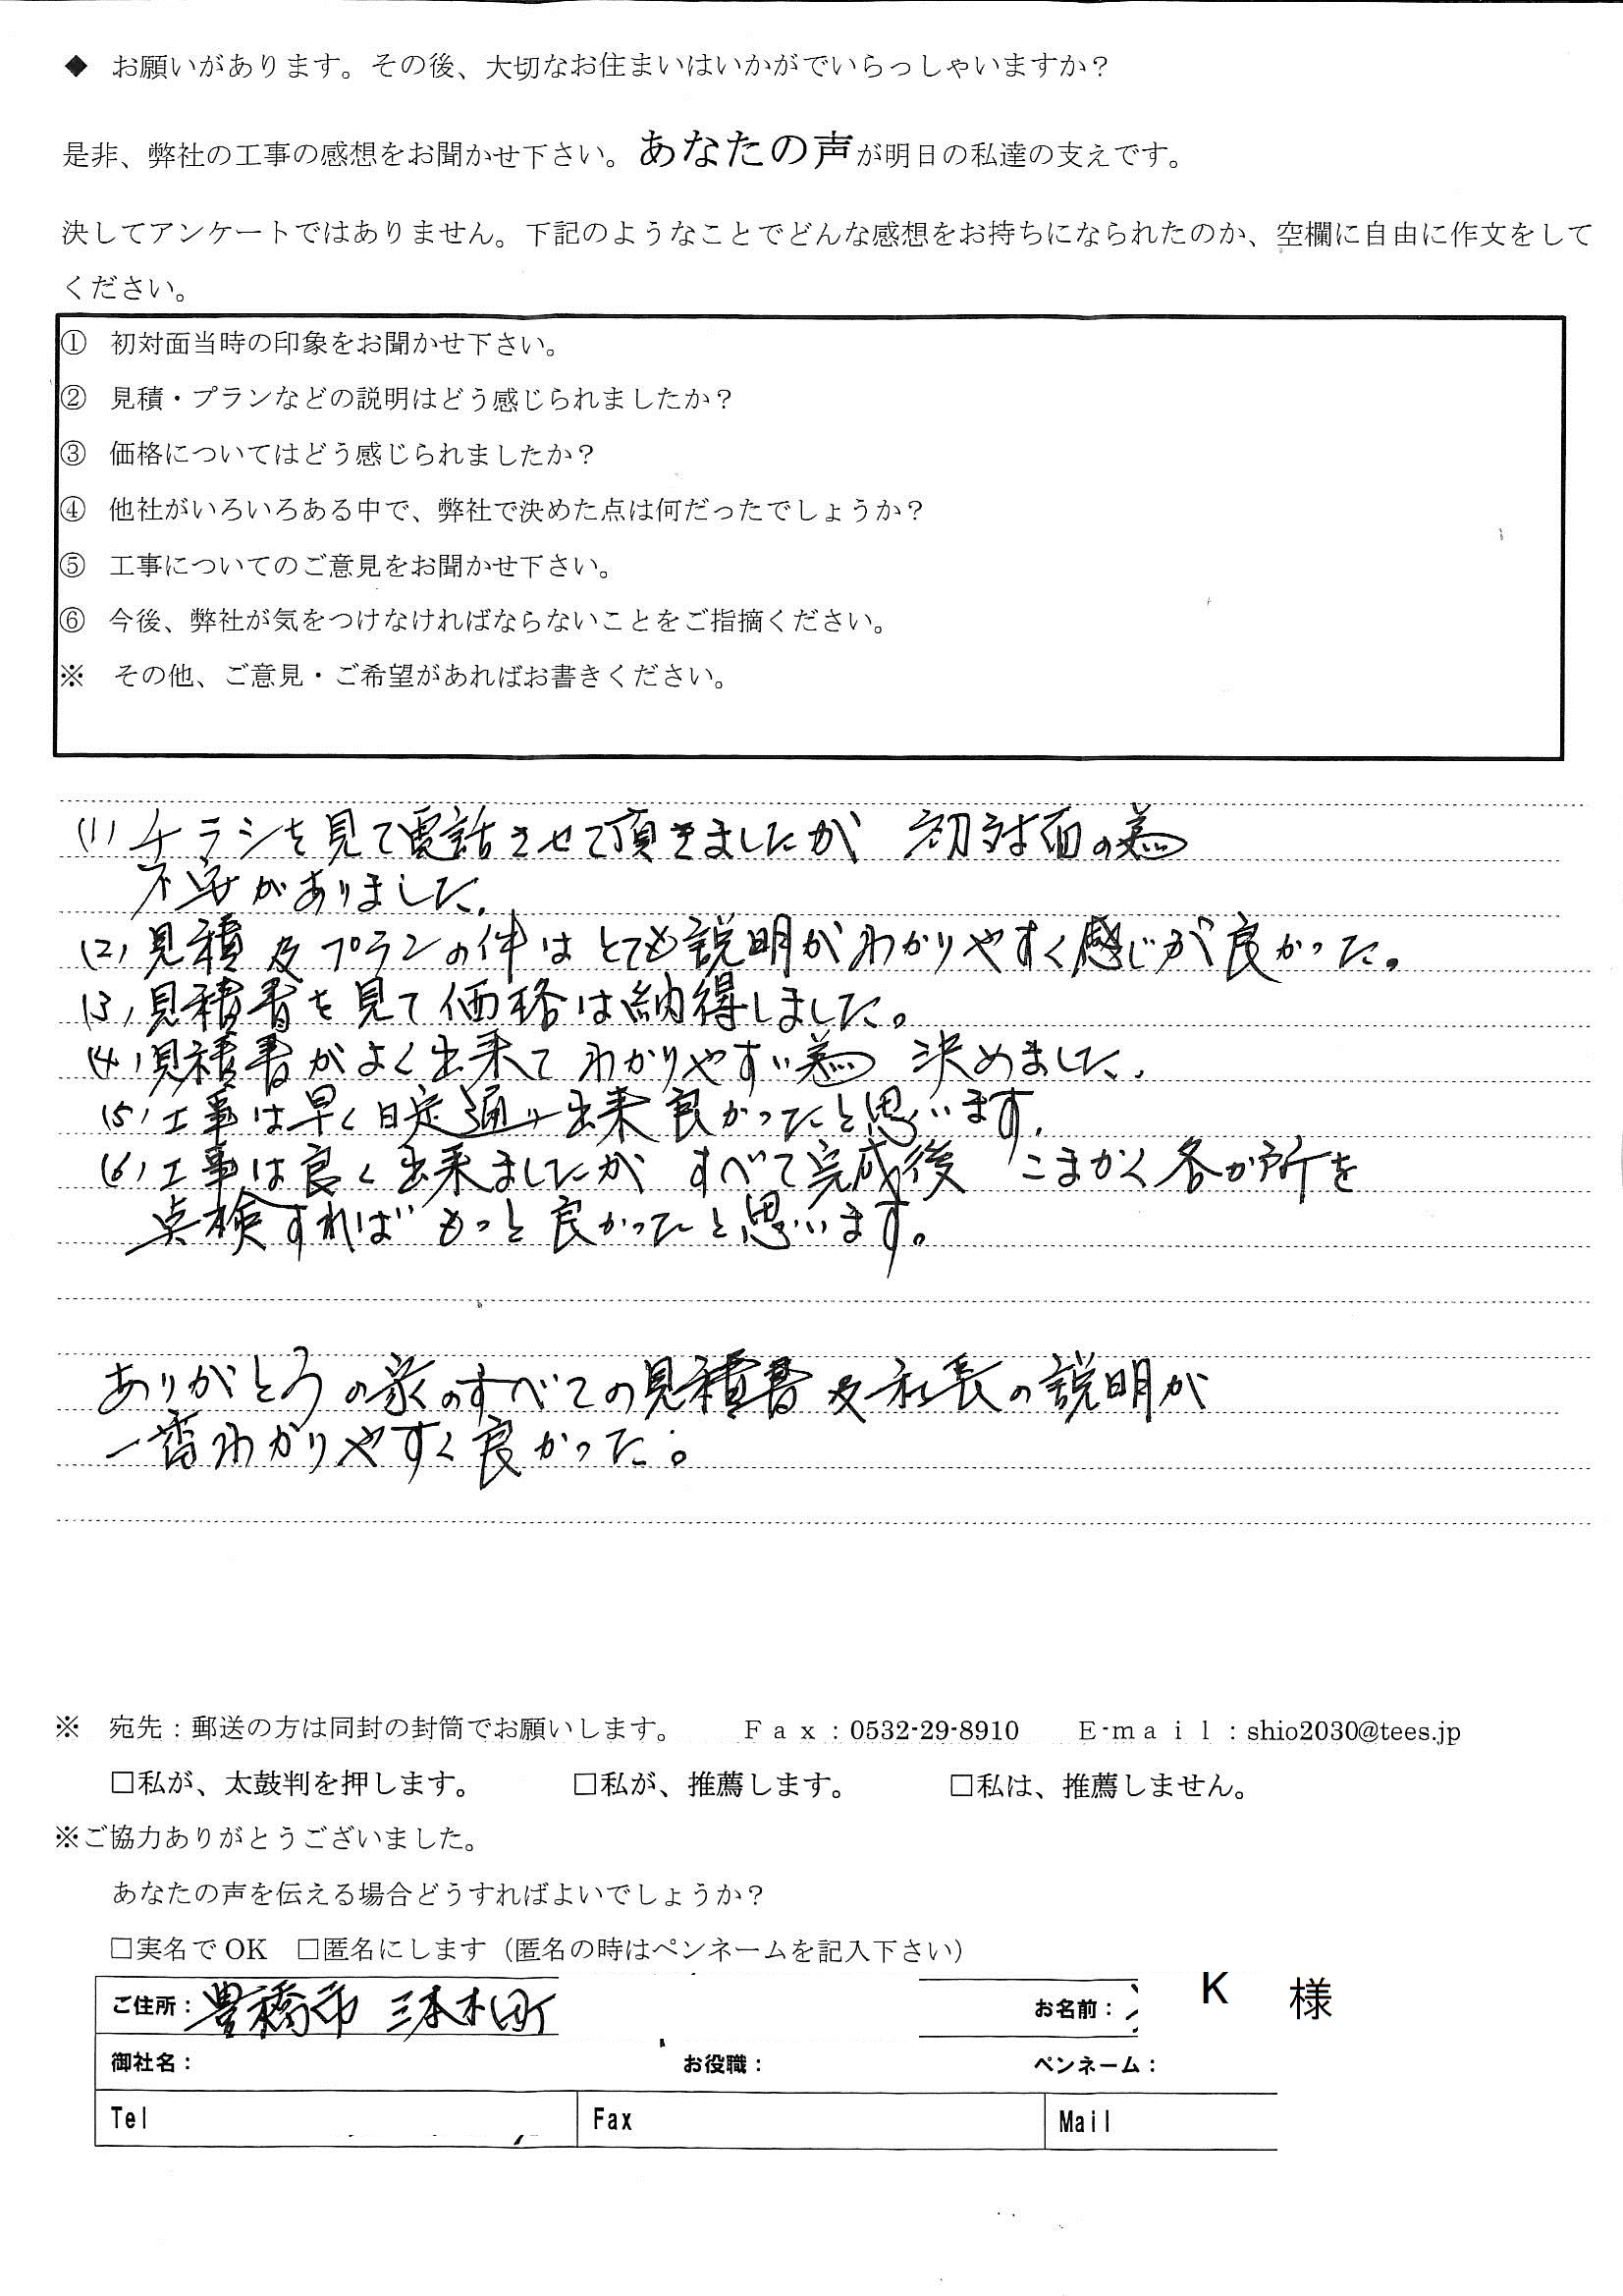 ◆ お願いがあります。その後、大切なお住まいはいかがでいらっしゃいますか？
是非、弊社の工事の感想をお聞かせ下さい。あなたの声が明日の私達の支えです。
決してアンケートではありません。下記のようなことでどんな感想をお持ちになられたのか、空欄に自由に作文をして
ください。
① 初対面当時の印象をお聞かせ下さい。
② 見積・プランなどの説明はどう感じられましたか？
③ 価格についてはどう感じられましたか？
④ 他社がいろいろある中で、弊社で決めた点は何だったでしょうか？
⑤ 工事についてのご意見をお聞かせ下さい。
⑥ 今後、弊社が気をつけなければならないことをご指摘ください。
※ その他、ご意見・ご希望があればお書きください。
(1) チラシを見て電話させて頂きましたが 初対面の為
不安がありました.
(2) 見積及プランの件はとても説明がわかりやすく感じが良かった。
(3) 見積書を見て価格は納得しました。
(4) 見積書がよく出来てわかりやすい為 決めました.
(5) 工事は早く日定通り出来良かったと思います.
(6) 工事は良く出来ましたが すべて完成後 こまかく各か所を
点検すれば もっと良かったと思います。
ありがとうの家のすべての見積書及社長の説明が
一番わかりやすく良かった。
※ 宛先：郵送の方は同封の封筒でお願いします。 Ｆａｘ：0532-29-8910 Ｅ-ｍａｉｌ：shio2030@tees.jp
□私が、太鼓判を押します。 □私が、推薦します。 □私は、推薦しません。
※ご協力ありがとうございました。
あなたの声を伝える場合どうすればよいでしょうか？
□実名で OK □匿名にします（匿名の時はペンネームを記入下さい）
ご住所：豊橋市 三本木町 お名前： K 様
御社名： お役職： ペンネーム：
Tel Fax Mail